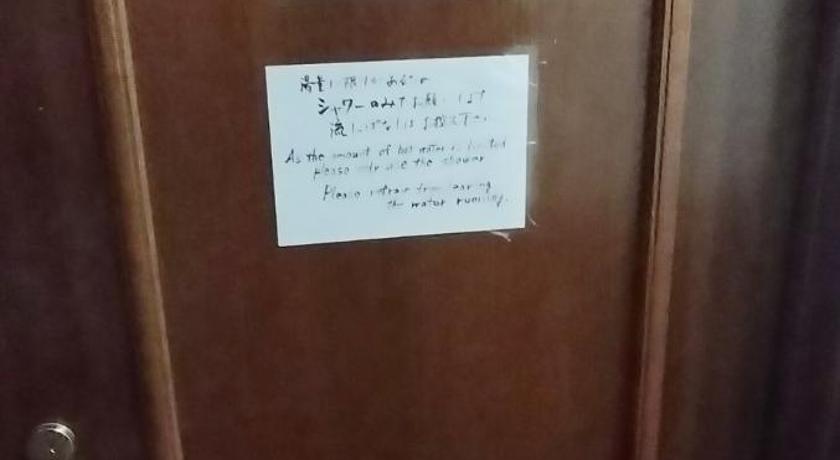 湯量に限りがあるので
シャワーのみでお願いします
流しっぱなしはお控え下さい
As the amount of hot water is limited
please only use the shower
Please refrain from leaving
the water running.